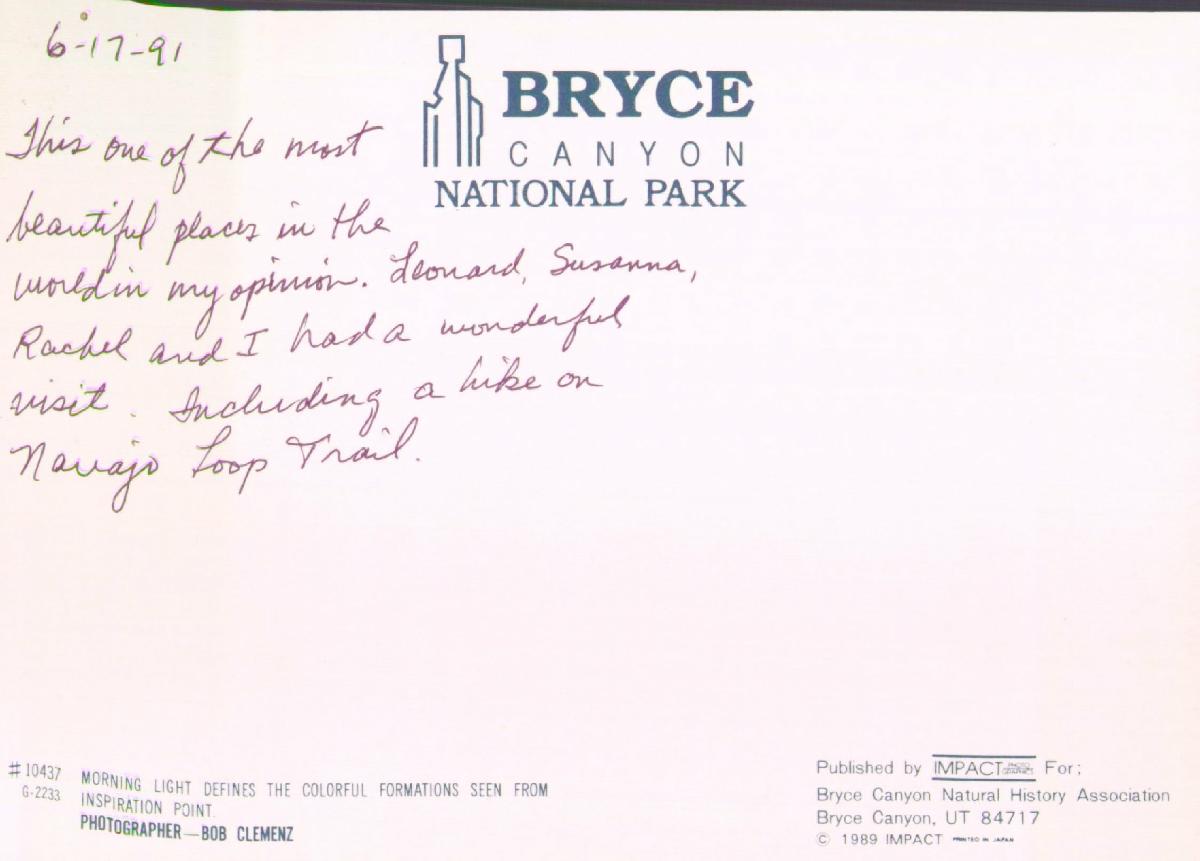 6-17-91
BRYCE
CANYON
NATIONAL PARK
This one of the most
beautiful places in the
world in my opinion. Leonard, Susanna,
Rachel and I had a wonderful
visit. Including a hike on
Navajo Loop Trail.
#10437
G-2233
MORNING LIGHT DEFINES THE COLORFUL FORMATIONS SEEN FROM
INSPIRATION POINT.
PHOTOGRAPHER—BOB CLEMENZ
Published by IMPACT PHOTO GRAPHICS For;
Bryce Canyon Natural History Association
Bryce Canyon, UT 84717
© 1989 IMPACT PRINTED IN JAPAN